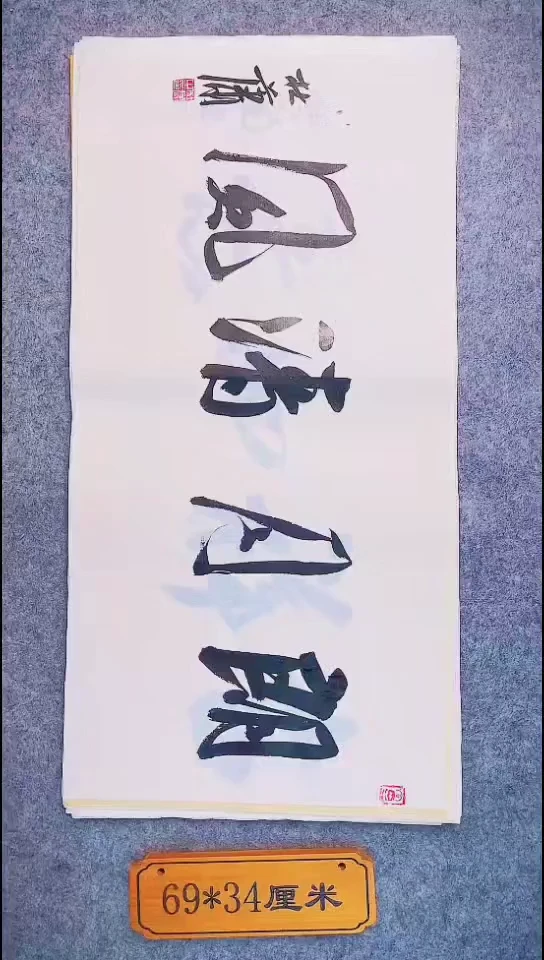 朗月清風
69*34厘米